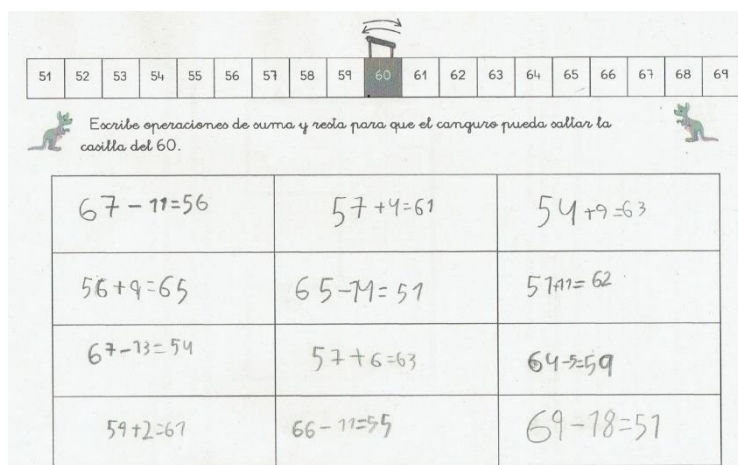 51 52 53 54 55 56 57 58 59 60 61 62 63 64 65 66 67 68 69
Escribe operaciones de suma y resta para que el canguro pueda saltar la
casilla del 60.
67 - 11=56 57+4=61 54+9=63
56+9=65 65-14=51 51+11= 62
67-13=54 57+6=63 64-5=59
59+2=61 66-11=55 69-18=51